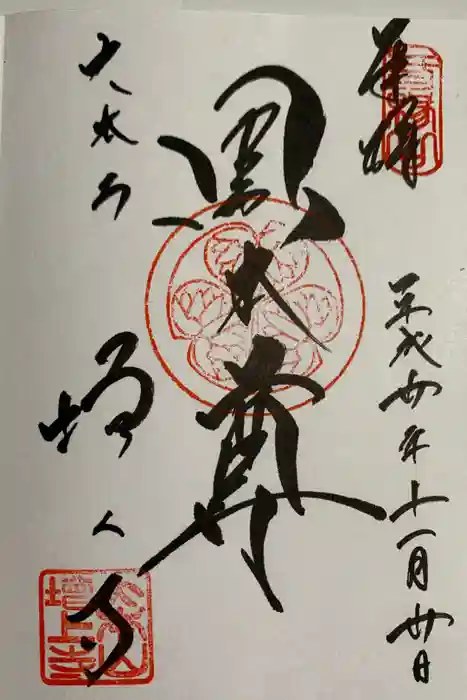 奉拝
平成廿年十一月廿日
黒本尊
大本山
増上寺